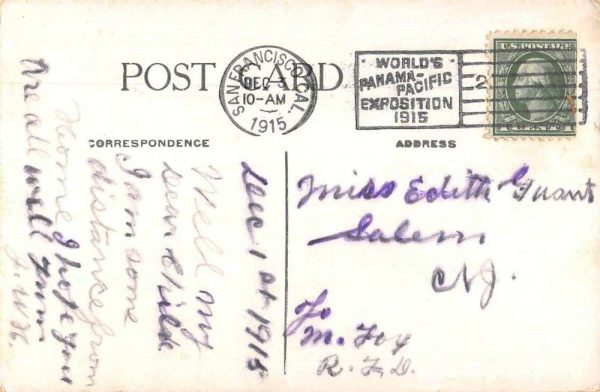 POST CARD
SAN FRANCISCO, CAL.
DEC
10-AM
1915
WORLD'S
PANAMA-
PACIFIC
EXPOSITION
1915
2
U.S. POSTAGE
CORRESPONDENCE
ADDRESS
Dec 1st 1915
Well my
dear Child
I am some
distance from
Home I hope you
are all well from
Miss Edith Grant
Salem
NJ.
To
M. Foy
R.F.D.